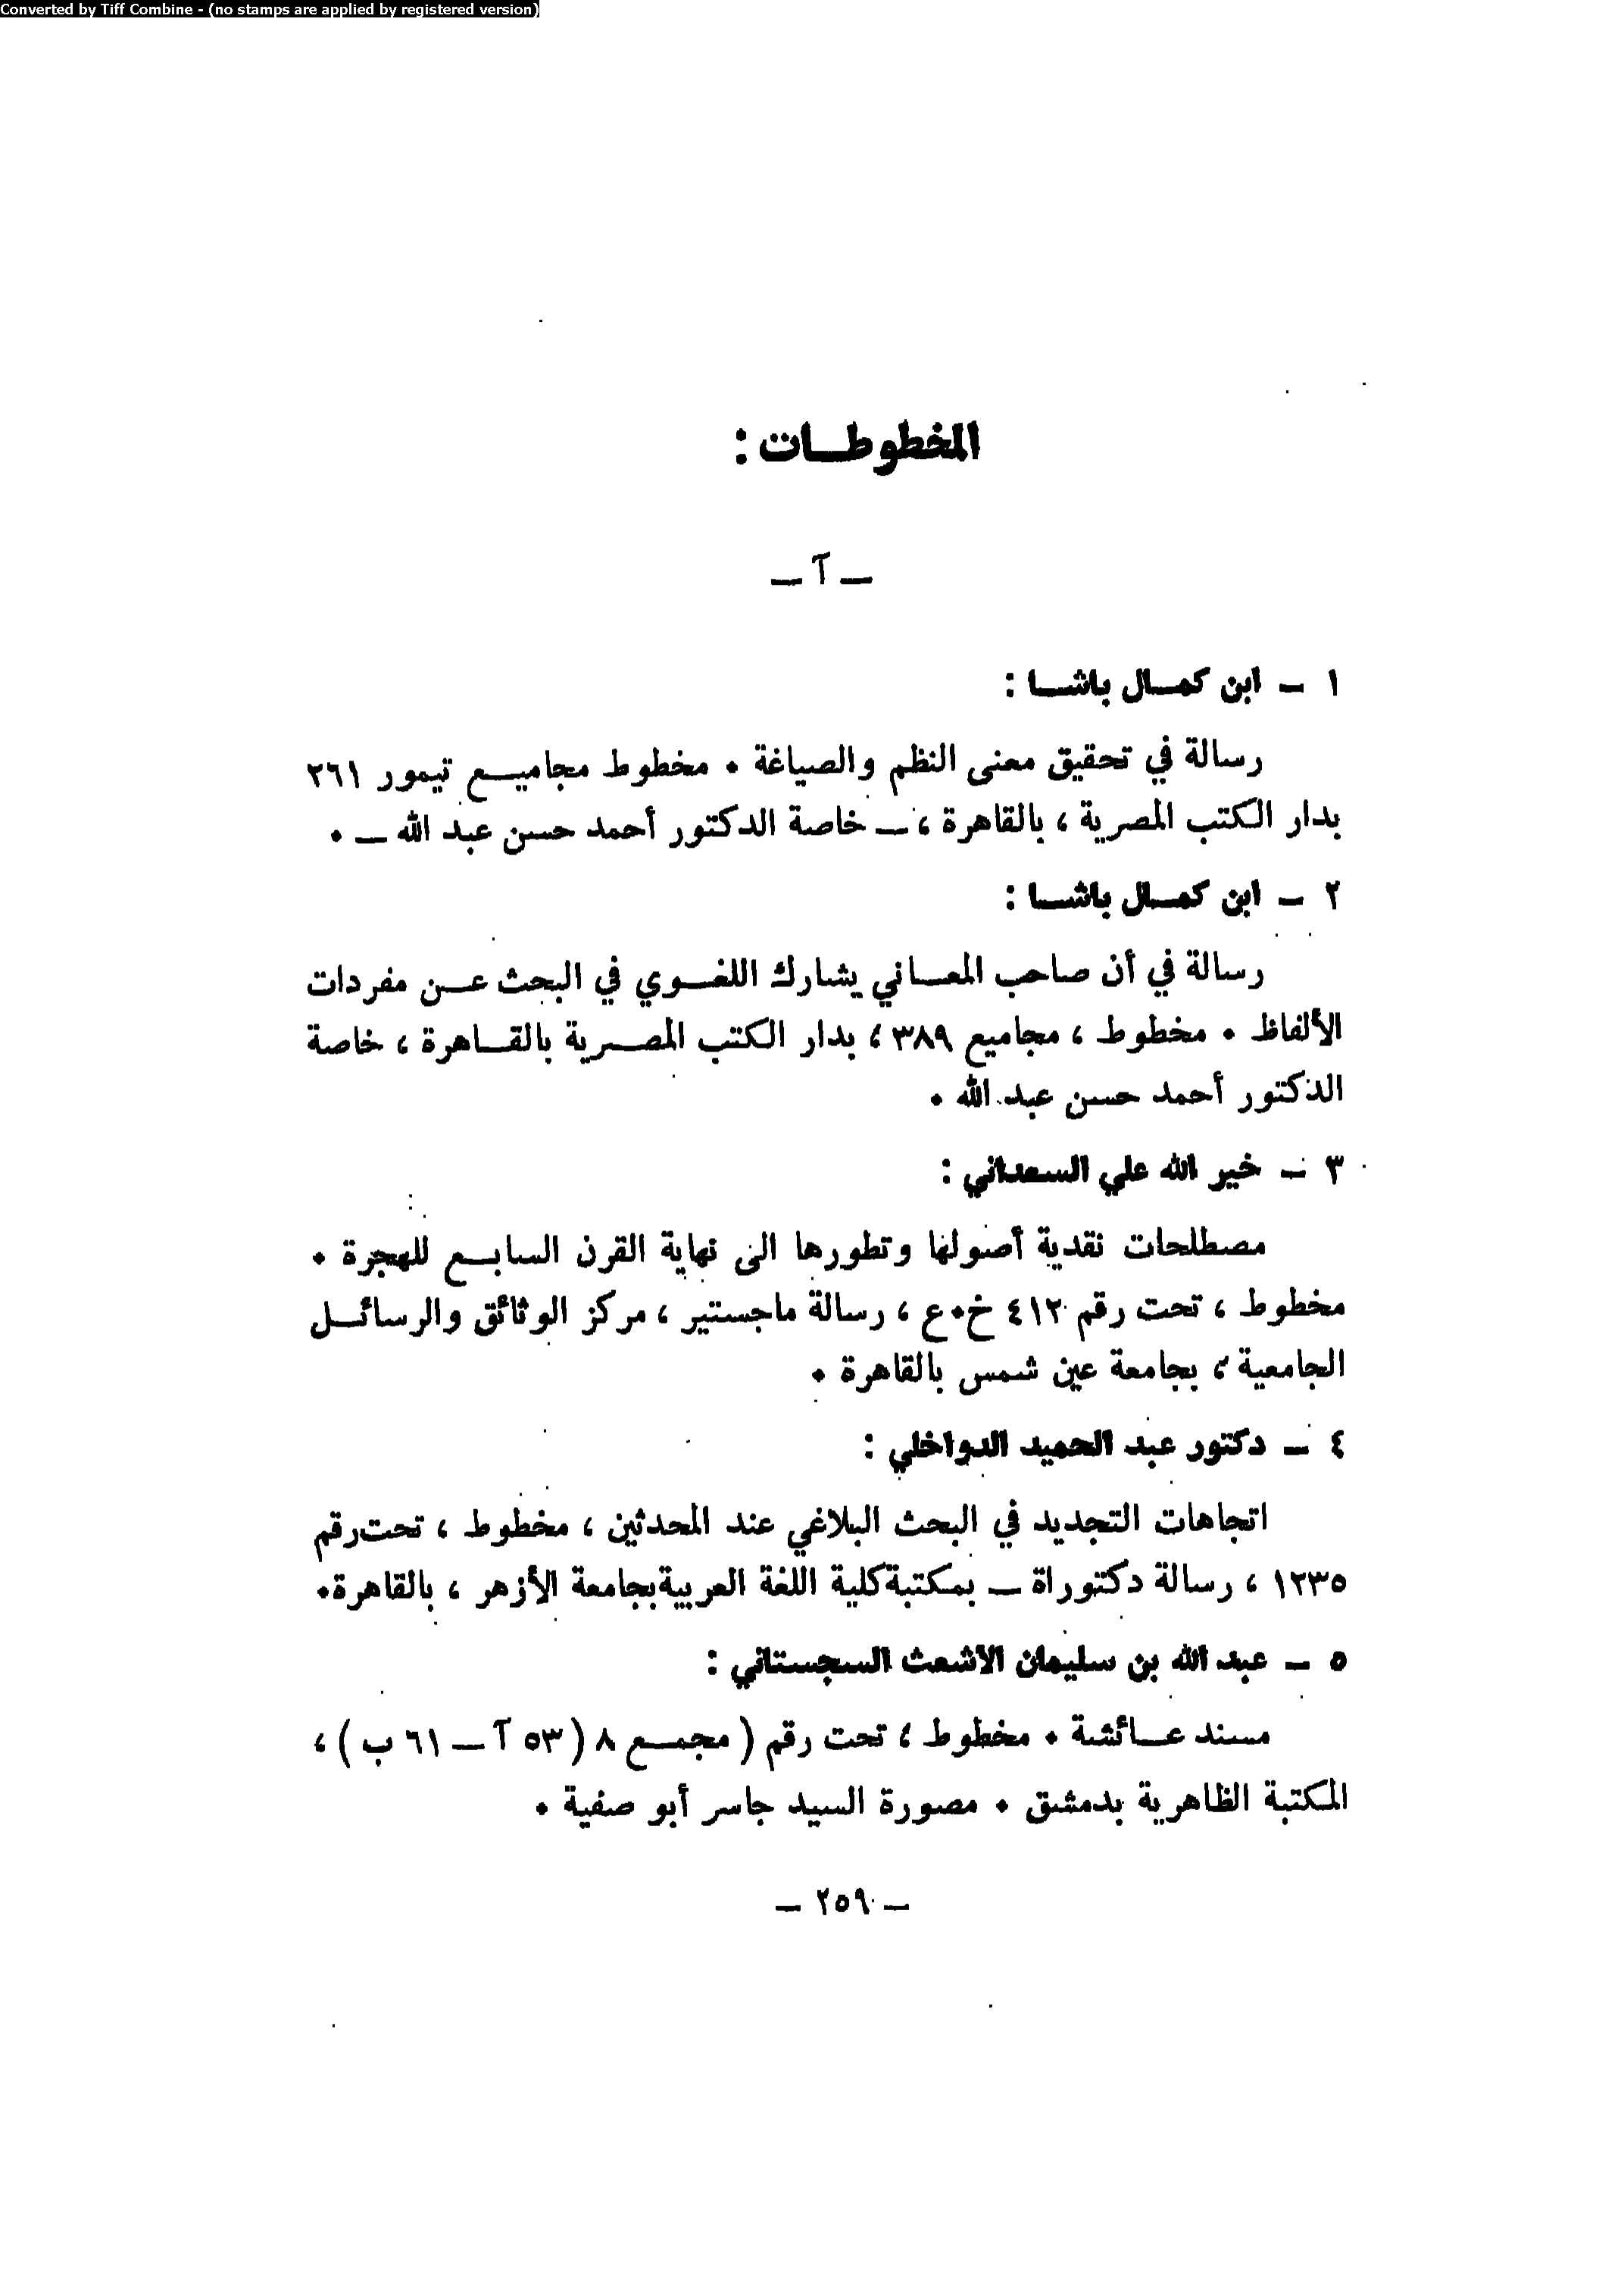 Converted by Tiff Combine - (no stamps are applied by registered version)
المخطوطـــات :
ـ آ ـ
١ ـ ابن كمــال باشــا :
رسالة في تحقيق معنى النظم والصياغة ٠ مخطوط مجاميــع تيمور ٢٦١
بدار الكتب المصرية ، بالقاهرة ، ـ خاصة الدكتور أحمد حسن عبد الله ـ ٠
٢ ـ ابن كمــال باشــا :
رسالة في أن صاحب المعــاني يشارك اللغــوي في البحث عــن مفردات
الألفاظ ٠ مخطوط ، مجاميع ٣٨٩ ، بدار الكتب المصــرية بالقــاهرة ، خاصة
الدكتور أحمد حسن عبد الله ٠
٣ ـ خير الله علي السعداني :
مصطلحات نقدية أصولها وتطورها الى نهاية القرن السابــع للهجرة ٠
مخطوط ، تحت رقم ٤١٢ خ٠ع ، رسالة ماجستير ، مركز الوثائق والرسائــل
الجامعية ، بجامعة عين شمس بالقاهرة ٠
٤ ـ دكتور عبد الحميد الدواخلي :
اتجاهات التجديد في البحث البلاغي عند المحدثين ، مخطوط ، تحت رقم
١٢٣٥ ، رسالة دكتوراة ـ بمكتبة كلية اللغة العربية بجامعة الأزهر ، بالقاهرة ٠
٥ ـ عبد الله بن سليمان الاشعث السجستاني :
مسند عــائشة ٠ مخطوط ، تحت رقم ( مجمــع ٨ ( ٥٣ آ ـ ٦١ ب ) ،
المكتبة الظاهرية بدمشق ٠ مصورة السيد جاسر أبو صفية ٠
ـ ٢٥٩ ـ